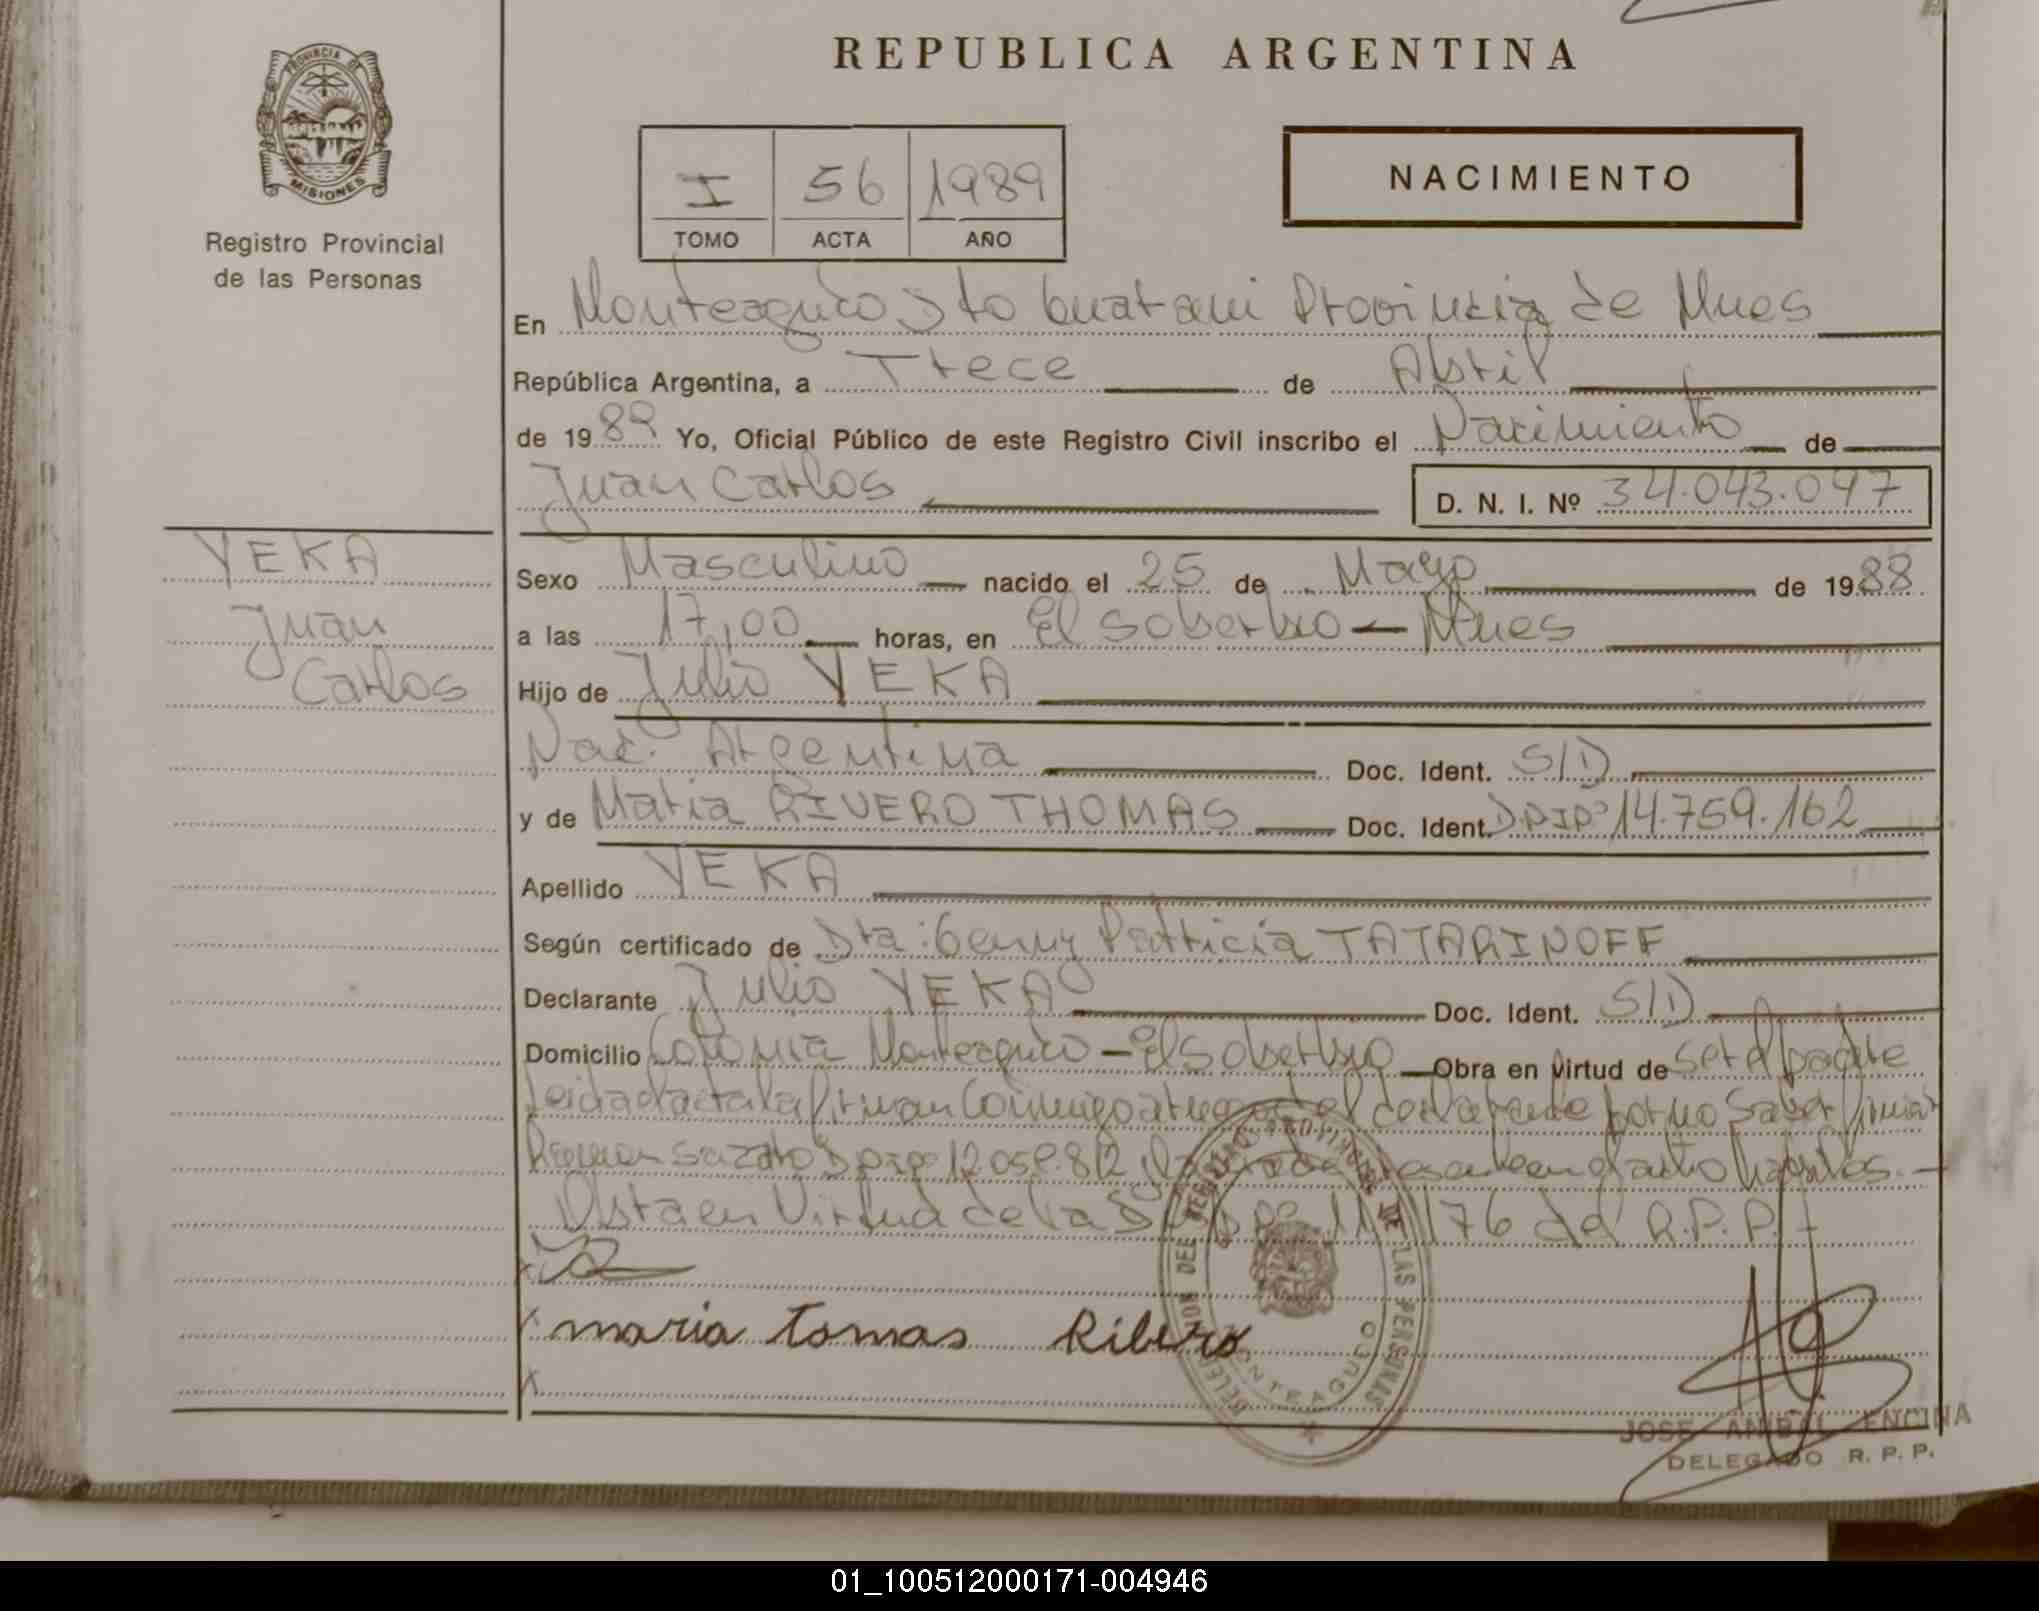 REPUBLICA ARGENTINA
PROVINCIA DE
MISIONES
Registro Provincial
de las Personas
I 56 1989
TOMO ACTA AÑO
NACIMIENTO
En Monteagudo Dto Guarani Provincia de Mnes
República Argentina, a Trece de Abril
de 1989 Yo, Oficial Público de este Registro Civil inscribo el Nacimiento de
Juan Carlos D. N. I. Nº 34.043.097
YEKA
Juan
Carlos
Sexo Masculino nacido el 25 de Mayo de 1988
a las 17,00 horas, en El Soberbio - Mnes
Hijo de Julio YEKA
Nac. Argentina Doc. Ident. S/D
y de Maria RIVERO THOMAS Doc. Ident. DNINº 14.759.162
Apellido YEKA
Según certificado de Dra: Genny Patricia TATARINOFF
Declarante Julio YEKA Doc. Ident. S/D
Domicilio Colonia Monteagudo - El Soberbio Obra en Virtud de ser el padre
Leida el acta la firman Conmigo a ruego del declarante por no Saber firmar
Ramon DNINº 12.05 812 en el acto
en Virtud de la 11 176 del R.P.P.
maria tomas Ribero
DEL REGISTRO PROVINCIAL DE LAS PERSONAS
MONTEAGUDO
JOSE ANIBAL ENCINA
DELEGADO R. P. P.
01_100512000171-004946